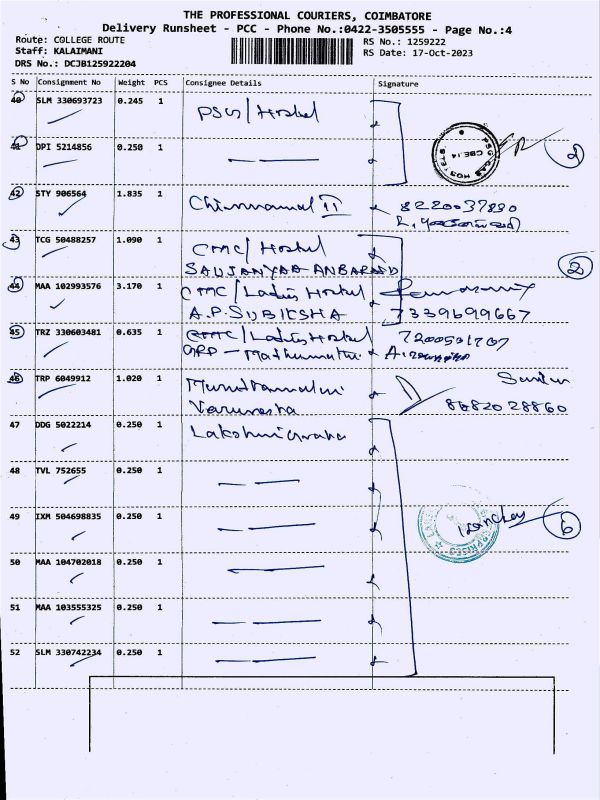 THE PROFESSIONAL COURIERS, COIMBATORE
Delivery Runsheet - PCC - Phone No.:0422-3505555 - Page No.:4
Route: COLLEGE ROUTE
RS No.: 1259222
Staff: KALAIMANI
RS Date: 17-Oct-2023
DRS No.: DCJB125922204
S No Consignment No Weight PCS Consignee Details Signature
40 SLM 330693723 0.245 1 PSG/Hostel
41 DPI 5214856 0.250 1 — — 2
42 STY 906564 1.835 1 Chinnamal II 8220037890
43 TCG 50488257 1.090 1 CMC/Hostel
SAUJANYAA ANBARASU 2
44 MAA 102993576 3.170 1 CMC/Ladies Hostel
A.P.SUBIKSHA 7339699667
45 TRZ 330603481 0.635 1 CMC/Ladies Hostel
GRP - Mathumathi
46 TRP 6049912 1.020 1
Varunesha
47 DDG 5022214 0.250 1
48 TVL 752655 0.250 1 — —
49 IXM 504698835 0.250 1 — — 6
50 MAA 104702018 0.250 1 —
51 MAA 103555325 0.250 1 — —
52 SLM 330742234 0.250 1 — —